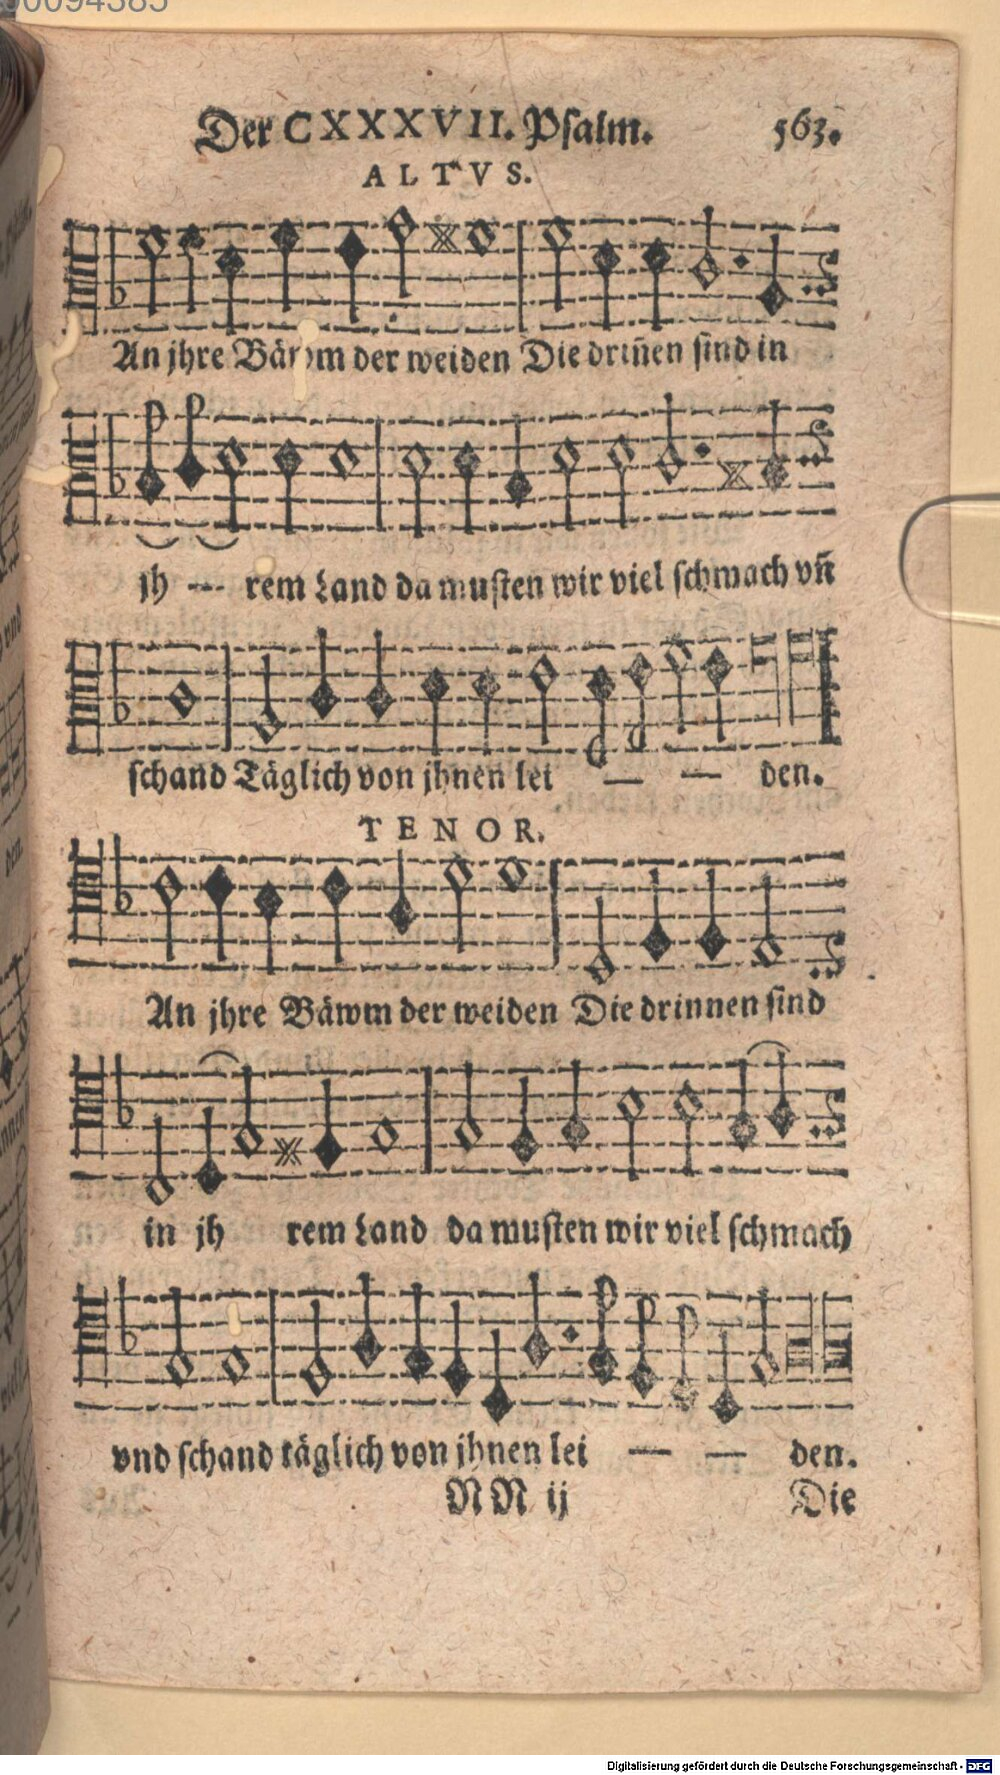 00094385
Der CXXXVII. Psalm. 563.
ALTVS.
An jhre Bäwm der weiden Die driñen sind in
jh --- rem Land da musten wir viel schmach vñ
schand Täglich von jhnen lei — — den.
TENOR.
An jhre Bäwm der weiden Die drinnen sind
in jh rem Land da musten wir viel schmach
vnd schand täglich von jhnen lei — — den.
NN ij Die
Digitalisierung gefördert durch die Deutsche Forschungsgemeinschaft - DFG